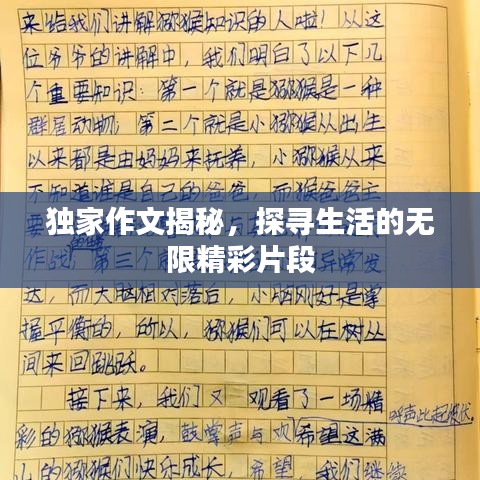 来给我们讲解猕猴知识的人啦！从这
位爷爷的讲解中，我们明白了以下几
个重要知识：第一个就是猕猴是一种
群居动物，第二个就是小猕猴从出生
以来都是由妈妈来抚养，小猕猴从来
不知道谁是自己的爸爸，而猴爸爸主
独家作文揭秘，探寻生活的无
限精彩片段
作战，第三个就
异常发
达，而大脑相对落后，小脑刚好是掌
握平衡的，的以，猕猴们可以在树丛
间来回跳跃。
接下来，我们又观看了一场精
呼声此起彼伏
彩的猕猴表演，鼓掌声与欢希望这满
山的猕猴们快乐成长，希望，我们继续